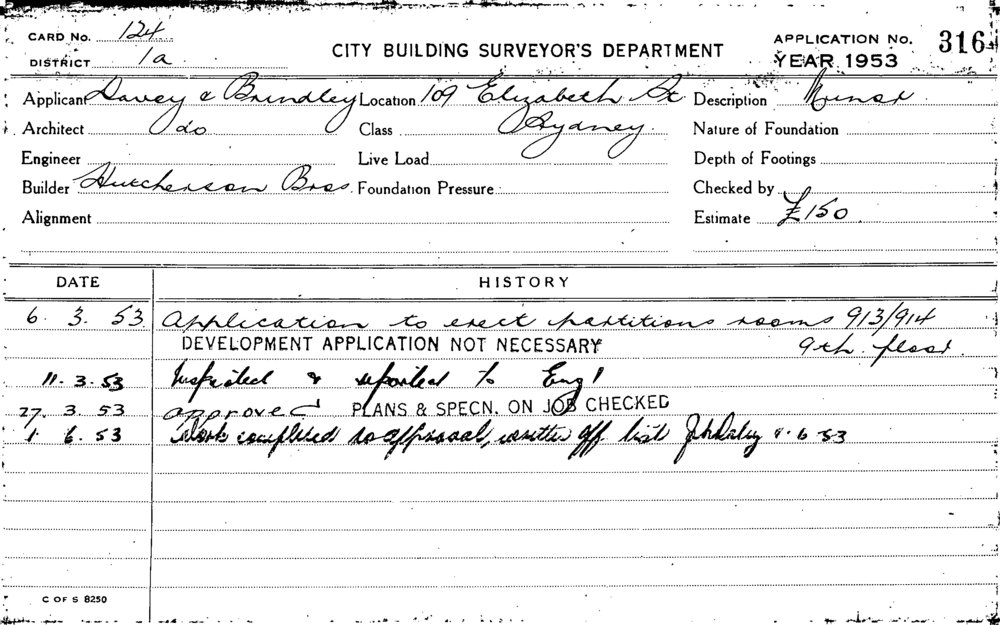 CARD No. 124
DISTRICT 1a
CITY BUILDING SURVEYOR'S DEPARTMENT
APPLICATION No. 316
YEAR 1953
Applicant Davey & Brindley Location 109 Elizabeth St Description Minor
Architect do Class Sydney Nature of Foundation
Engineer Live Load Depth of Footings
Builder Hutcherson Bros. Foundation Pressure Checked by
Alignment Estimate £150
DATE HISTORY
6. 3. 53 Application to erect partitions rooms 913/914
DEVELOPMENT APPLICATION NOT NECESSARY 9th. floor.
11. 3. 53 Inspected & reported to Eng'
27. 3. 53 approved PLANS & SPECN. ON JOB CHECKED
1. 6. 53 Work completed to approval, written off list 6-53
C OF S 8250